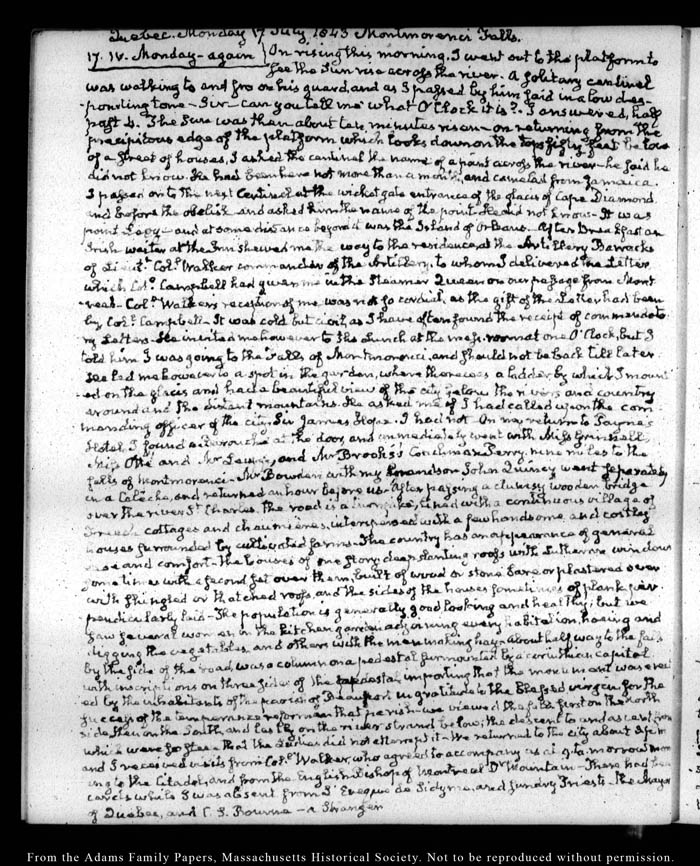 Quebec. Monday 17 July 1843 Montmorenci Falls.
17. IV. Monday - again } On rising this morning, I went out to the platform to
see the Sun rise across the river. A solitary centinel
was walking to and fro on his guard, and as I passed by him said in a low des-
ponding tone - Sir - can you tell me what O'Clock it is? I answered, half
past 4. The Sun was then about ten minutes risen - on returning from the
precipitous edge of the platform which looks down on the tops fifty feet below
of a street of houses, I asked the centinel the name of a point across the river - he said he
did not know. He had been here not more than a month, and came last from Jamaica.
I passed on to the next Centinel at the wicket gate entrance of the glacis of Cape Diamond
and before the obelisk and asked him the name of the point. He did not know - It was
point Levy - and at some distance beyond it was the Island of Orleans. After Breakfast an
Irish waiter at the Inn shewed me the way to the residence at the Artillery Barracks
of Lieut. Col. Walker commander of the Artillery, to whom I delivered the Letter
which Col. Campbell had given me in the Steamer Queen on our passage from Mont
real - Col. Walker's reception of me was not so cordial, as the gift of the Letter had been
by Col. Campbell - It was cold but civil, as I have often found the receipt of commendato-
ry Letters. He invited me however to the Lunch at the mess-room at one O'Clock, but I
told him I was going to the Falls of Montmorenci, and should not be back till later
He led me however to a spot in the garden, where there was a ladder by which I mount
ed on the glacis and had a beautiful view of the city below the rivers and country
around and the distant mountains. He asked me if I had called upon the com
manding officer of the city, Sir James Hope. I had not. On my return to Payne's
Hotel, I found a barouche at the door, and immediately went with Miss Grinnell,
Miss Otis and Mr and Mr Brooks's Coachman Perry. nine miles to the
falls of Montmorenci - Mr Bowden with my Grandson John Quincy went separately
in a Caleche, and returned an hour before us - After passing a clumsy wooden bridge
over the river St Charles, the road is a turnpike, lined with a continuous village of
French cottages and chaumieres, interspersed with a few handsome and costly
houses surrounded by cultivated farms - The country has an appearance of general
ease and comfort - The houses of one story, deep slanting roofs with Lutheran windows
sometimes with a second set over them, built of wood or stone bare or plastered over
with shingled or thatched roofs, and the sides of the houses sometimes of plank per-
pendicularly laid - The population is generally good looking and healthy; but we
saw several women in the kitchen garden adjoining every habitation, hoeing and
digging the vegetables, and others with the men making hay. about half way to the falls
by the side of the road, was a column on a pedestal surmounted by a corinthian capital
with inscriptions on three sides of the pedestal importing that the monument was erect
ed by the inhabitants of the parish of Beauport in gratitude to the Blessed virgin for the
success of the temperance reform in that parish - we viewed the falls first on the north
side, then on the South, and lastly on the river strand below; the descent to and ascent from
which were so steep that the Ladies did not attempt it - We returned to the city about 3 p.m
and I received visits from Col. Walker, who agreed to accompany us at 9 to-morrow morn
ing to the Citadel, and from the English Bishop of Montreal Dr Mountain - There had been
cards while I was absent from L'Eveque de Sidyme, and sundry Priests - the Mayor
of Quebec, and C. S. Bourne - a Stranger
From the Adams Family Papers, Massachusetts Historical Society. Not to be reproduced without permission.